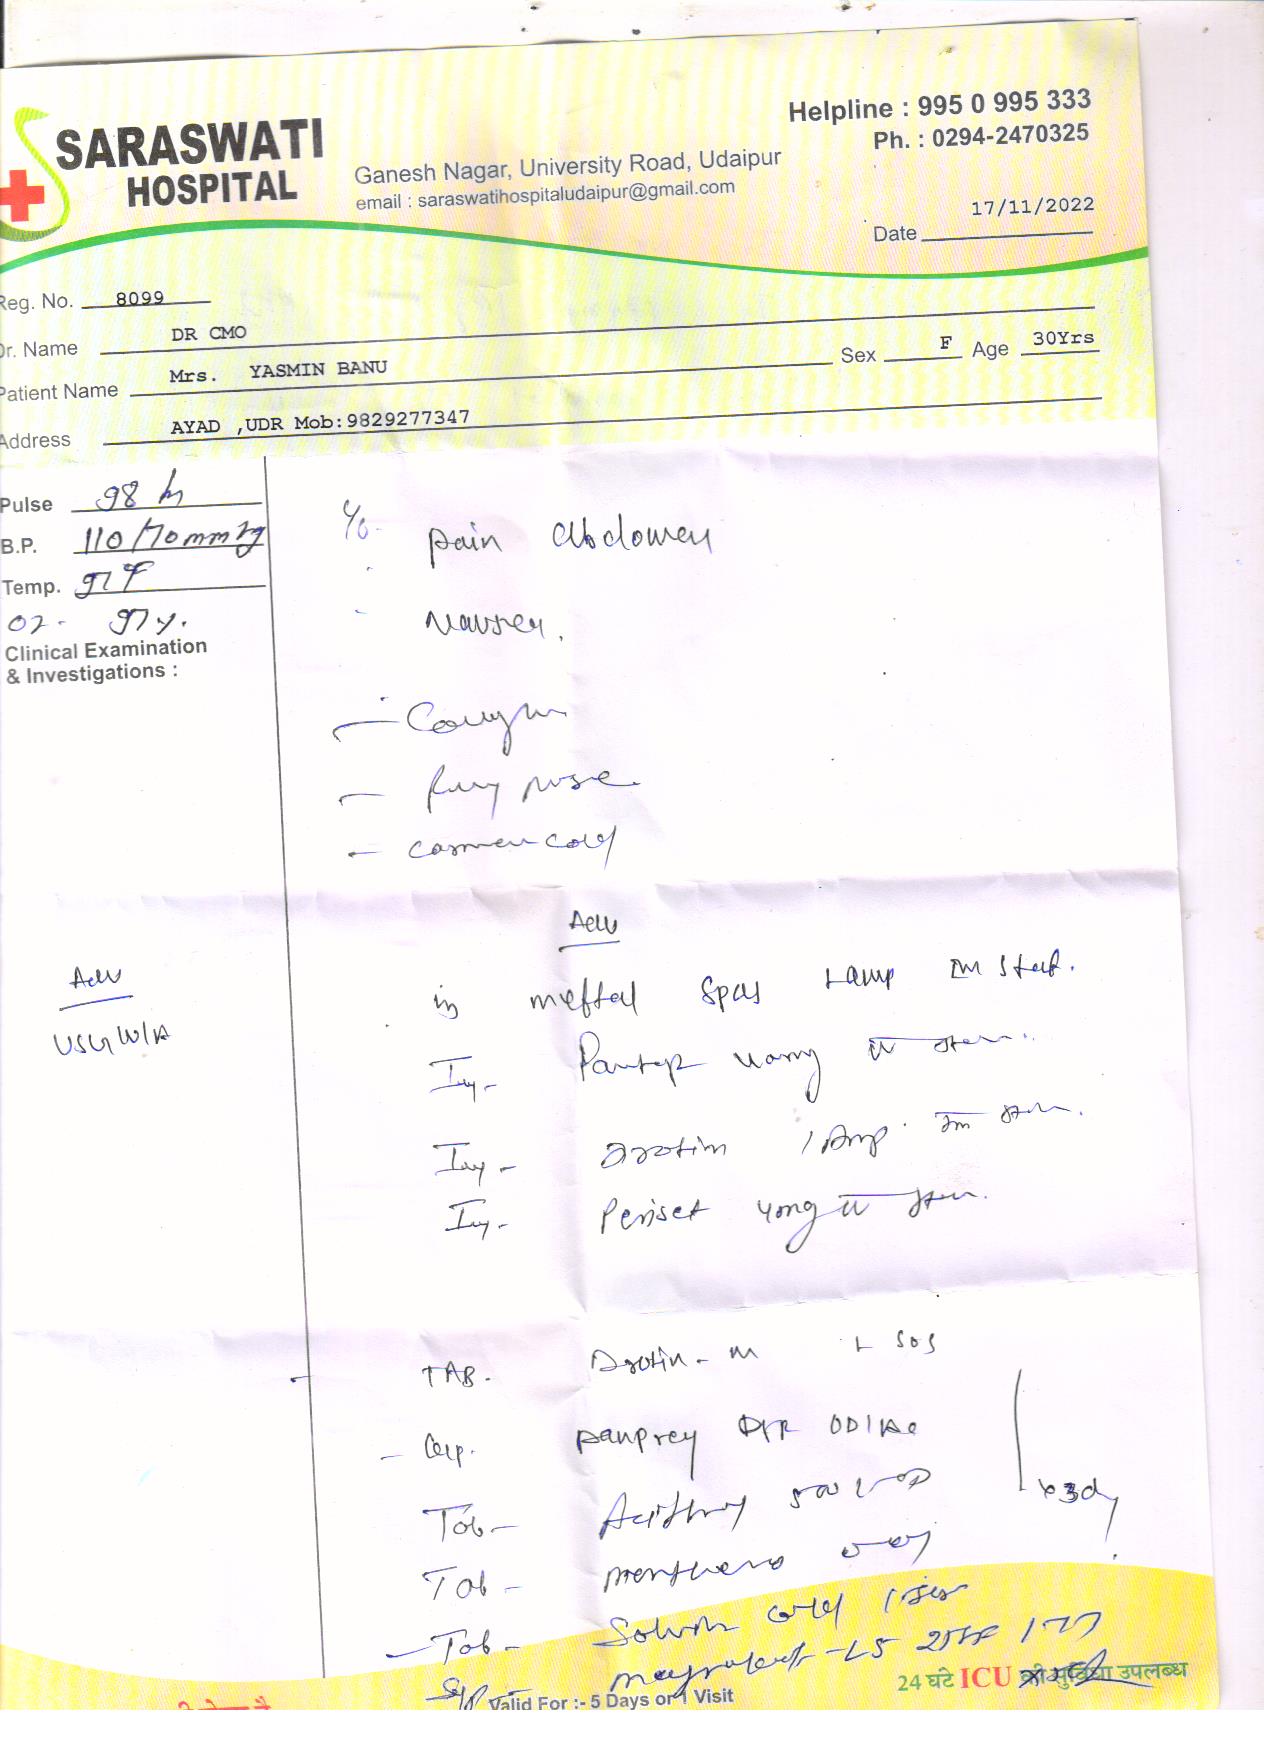 SARASWATI
HOSPITAL
Ganesh Nagar, University Road, Udaipur
email : saraswatihospitaludaipur@gmail.com
Helpline : 995 0 995 333
Ph. : 0294-2470325
Date 17/11/2022
Reg. No. 8099
Dr. Name DR CMO
Patient Name Mrs. YASMIN BANU Sex F Age 30Yrs
Address AYAD ,UDR Mob:9829277347
Pulse 98
B.P. 110/70 mmHg
Temp. 97 F
O2 - 97 %.
Clinical Examination
& Investigations :
Adv
USG W/A
C/o- pain abdomen
Nausea.
- Cough
- Runny nose
- Common cold
Adv
Inj meftal spas 1 amp IM Stat.
Inj- Pantop 40mg IV Stat.
Inj- Drotin 1 Amp. IM Stat.
Inj- Periset 4mg IV Stat.
TAB. Drotin-M SOS
- Cap. DSR OD
Tab- 500
Tab-
x 3d
- Tab- cold
Syp - LS
24 घंटे ICU की सुविधा उपलब्ध
Valid For :- 5 Days or 1 Visit